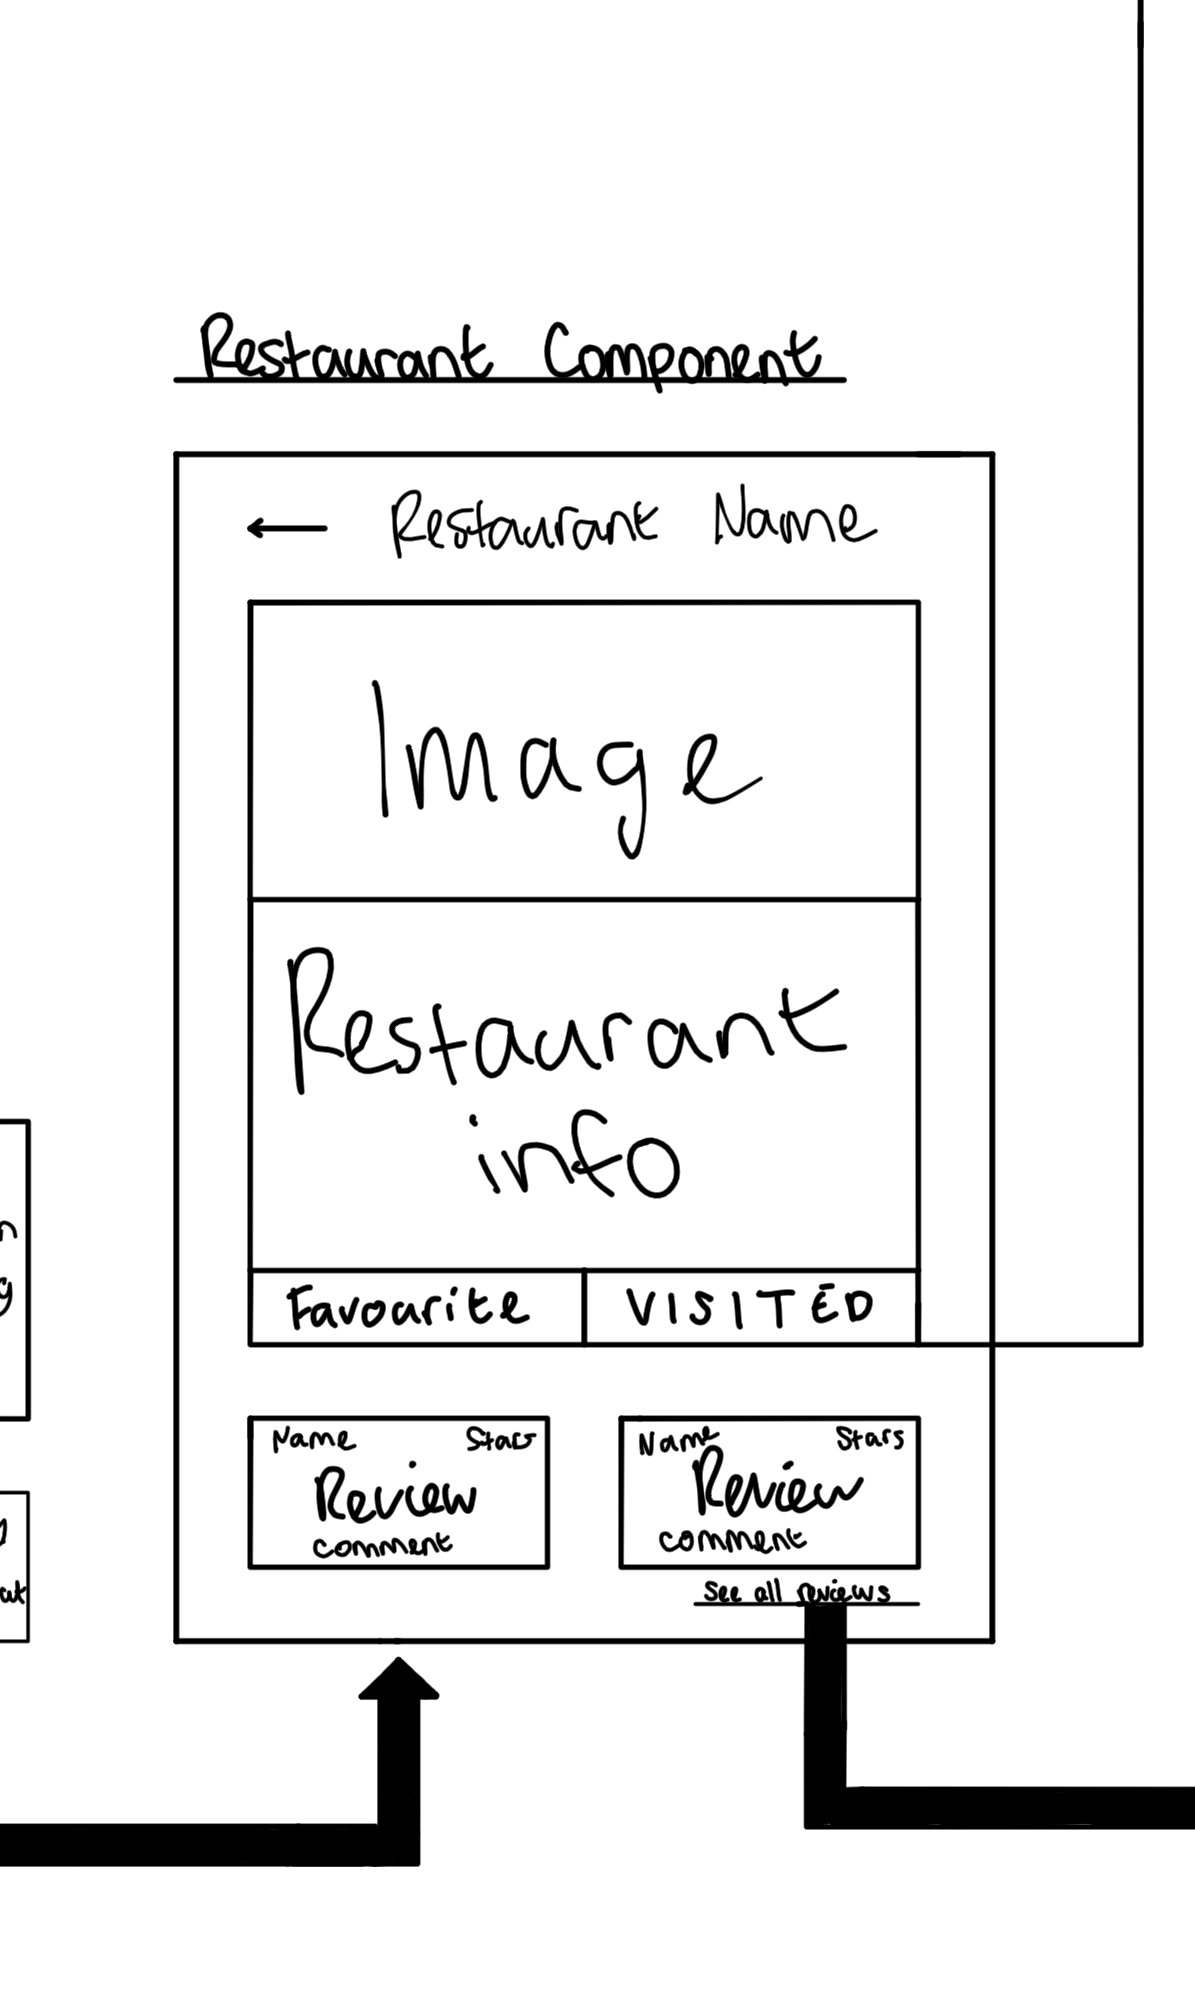 Restaurant Component
Restaurant Name
Image
Restaurant
info
Favourite VISITED
Name Stars
Review
comment
Name Stars
Review
comment
See all reviews